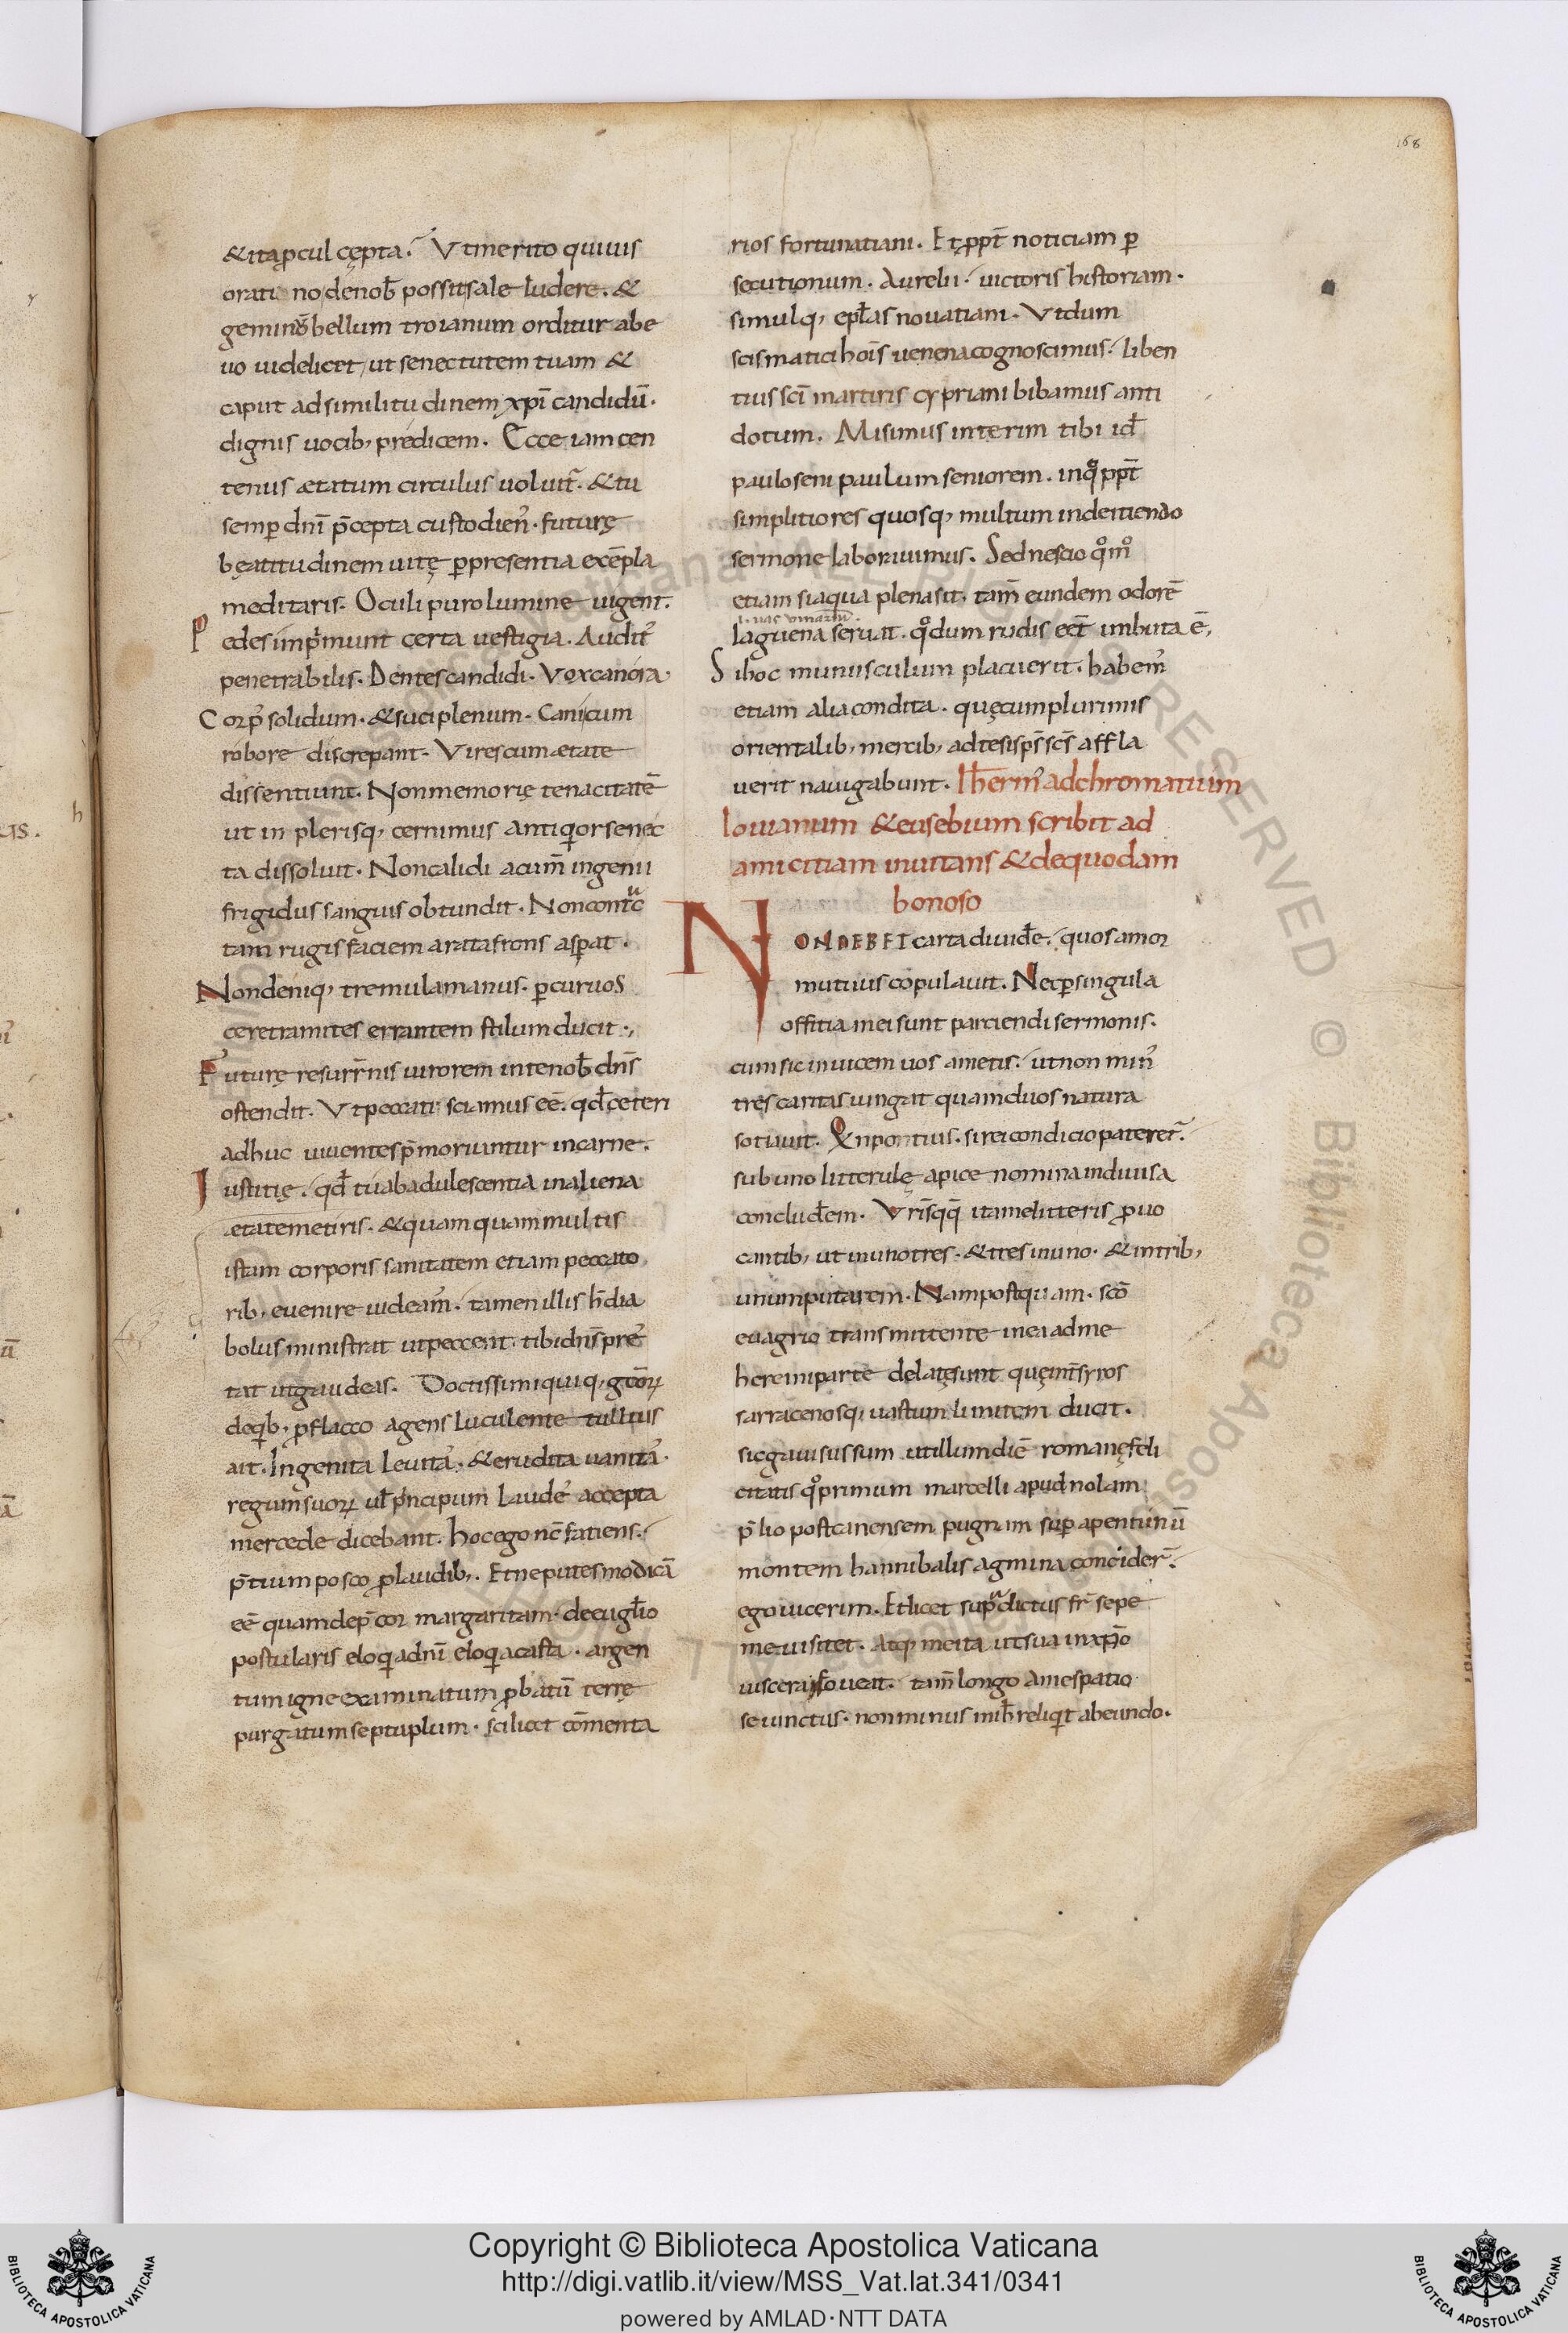 168
&ita ꝓcul cępta. Vt merito quiuis
orati no de nob̄ possit sale ludere. &
geminis bellum troianum orditur ab e
uo uidelicet, ut senectutem tuam &
caput ad similitudinem xp̄i candidū.
dignis uocib, predicem. Ecce iam cen
tenus ætatum circulus uoluit̃. & tu
semꝑ dn̄i p̄cepta custodien᷒. futurę
bęatitudinem uitę ꝑ presentia exēpla
meditaris. Oculi puro lumine uigent.
Pedes imp̃munt certa uestigia. Audit᷒
penetrabilis. Dentes candidi. Vox canora.
Corp᷒ solidum. & suci plenum. Cani cum
robore discrepant. Vires cum ætate
dissentiunt. Non memorię tenacitatē
ut in plerisq, cernimus antiqior senec
ta dissoluit. Non calidi acum̄ ingenii
frigidus sanguis obtundit. Non contc
tam rugis faciem arata frons asꝑat.
Non deniq, tremula manus. ꝑ curuos
cere tramites errantem stilum ducit.,
Futurę resurr̄nis uirorem in te nob̄ dn̄s
ostendit. Vt peccati sciamus eē. qđ ceteri
adhuc uiuentes p̄moriuntur in carne.
Iustitię. qđ tu ab adulescentia in aliena
ætate metiris. & quamquam multis
istam corporis sanitatem etiam peccato
rib, euenire uideam᷒. tamen illis h̄ dia
bolus ministrat ut peccent. tibi dn̄s pre᷒
tat ut gaudeas. Doctissimi quiq, gcōꝝ
de qib. ꝓ flacco agens luculente tullius
ait. Ingenita leuita᷒. & erudita uanita᷒.
regum suoꝝ ut̄ pncipum laude᷒ accepta
mercede dicebant. hoc ego nc̄ fatiens.
p̄tium posco ꝓ laudib,. Et ne putes modicā
eē quam dep̄cor margaritam. de eugl̄io
postularis eloqia dn̄i eloqia casta. argen
tum igne examinatum ꝓbatū terrę
purgatum septuplum. scilicet cōmenta
rios fortunatiani. Et ꝓppt̄ noticiam ꝑ
secutionum. Aurelii. uictoris historiam.
simulq, epl̄as nouatiani. Vt dum
scismatici hoīs uenena cognoscimus. liben
tius sc̄i martiris cypriani bibamus anti
dotum. Misimus interim tibi id̄
paulo seni paulum seniorem. in qͦ ppt̄
simplitiores quosq, multum in deitiendo
sermone laborauimus. Sed nescio qͦmͦ
etiam si aqua plena sit. tam̄ eundem odorē
i. uas uinariū
laguena seruat. qͦ dum rudis eēt imbuta ē,
Si hoc munusculum placuerit. habem᷒
etiam alia condita. quę cum plurimis
orientalib, mercib, ad te si sp̄s sc̄s affla
uerit nauigabunt. Ih̄erm᷒ ad chromatium
Iouianum & eusebium scribit ad
amicitiam inuitans & de quodam
bonoso
NON DEBET carta diuidere. quos amor
mutuus copulauit. Nec ꝑ singula
offitia mei sunt parciendi sermonis.
cum sic inuicem uos ametis. ut non min᷒
tres caritas iungat quam duos natura
sotiauit. Qin potius. si rei condicio pateret̃.
sub uno litterulę apice nomina indiuisa
concludem. Vr̄is qq̄ ita me litteris ꝓuo
cantib, ut in uno tres. & tres in uno. & in trib,
unum putarem. Nam postquam. scō
euagrio transmittente in ea ad me
heremi parte delatę sunt quę int̄ syros
sarracenosq, uastum limitem ducit.
sic gauisus sum ut illum diē romanę feli
citatis qͦ primum marcelli apud nolam
p̄lio post canensem pugnam suꝑ apentinū
montem hannibalis agmina concider̄.
ego uicerim. Et licet sup̄dictus fr̄ sepe
me uisitet. atq, me ita ut sua in xp̄o
uiscera foueat. tam̄ longo a me spatio
seiunctus. non minus mih̄ reliqit abeundo.
Copyright © Biblioteca Apostolica Vaticana
http://digi.vatlib.it/view/MSS_Vat.lat.341/0341
powered by AMLAD·NTT DATA
BIBLIOTECA APOSTOLICA VATICANA
BIBLIOTECA APOSTOLICA VATICANA